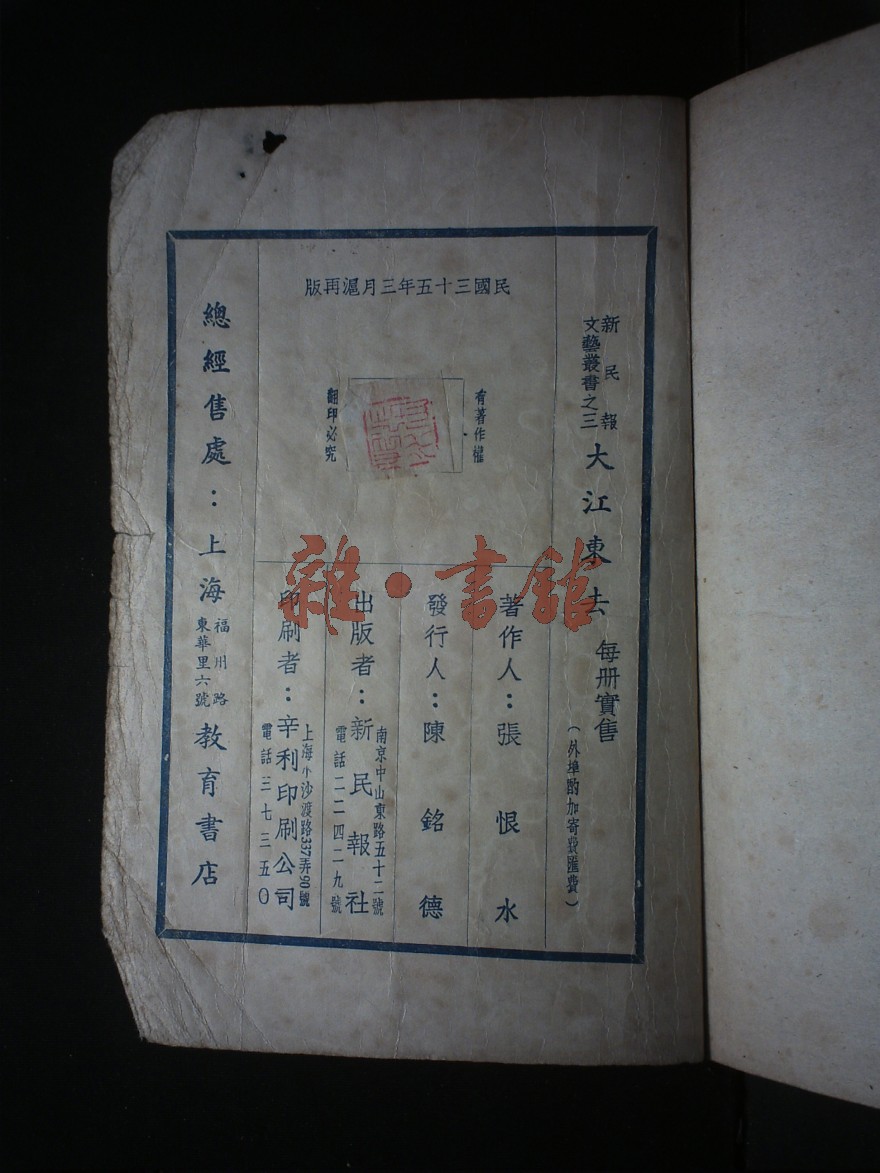 民國三十五年三月滬再版
新民報
文藝叢書之三
大江東去
每冊實售
（外埠酌加寄費匯費）
有著作權
翻印必究
著作人：張恨水
發行人：陳銘德
出版者：新民報社
南京中山東路五十二號
電話二二四二九號
印刷者：辛利印刷公司
上海小沙渡路337弄90號
電話三七三五〇
總經售處：上海
福州路
東華里六號
教育書店
雜·書館